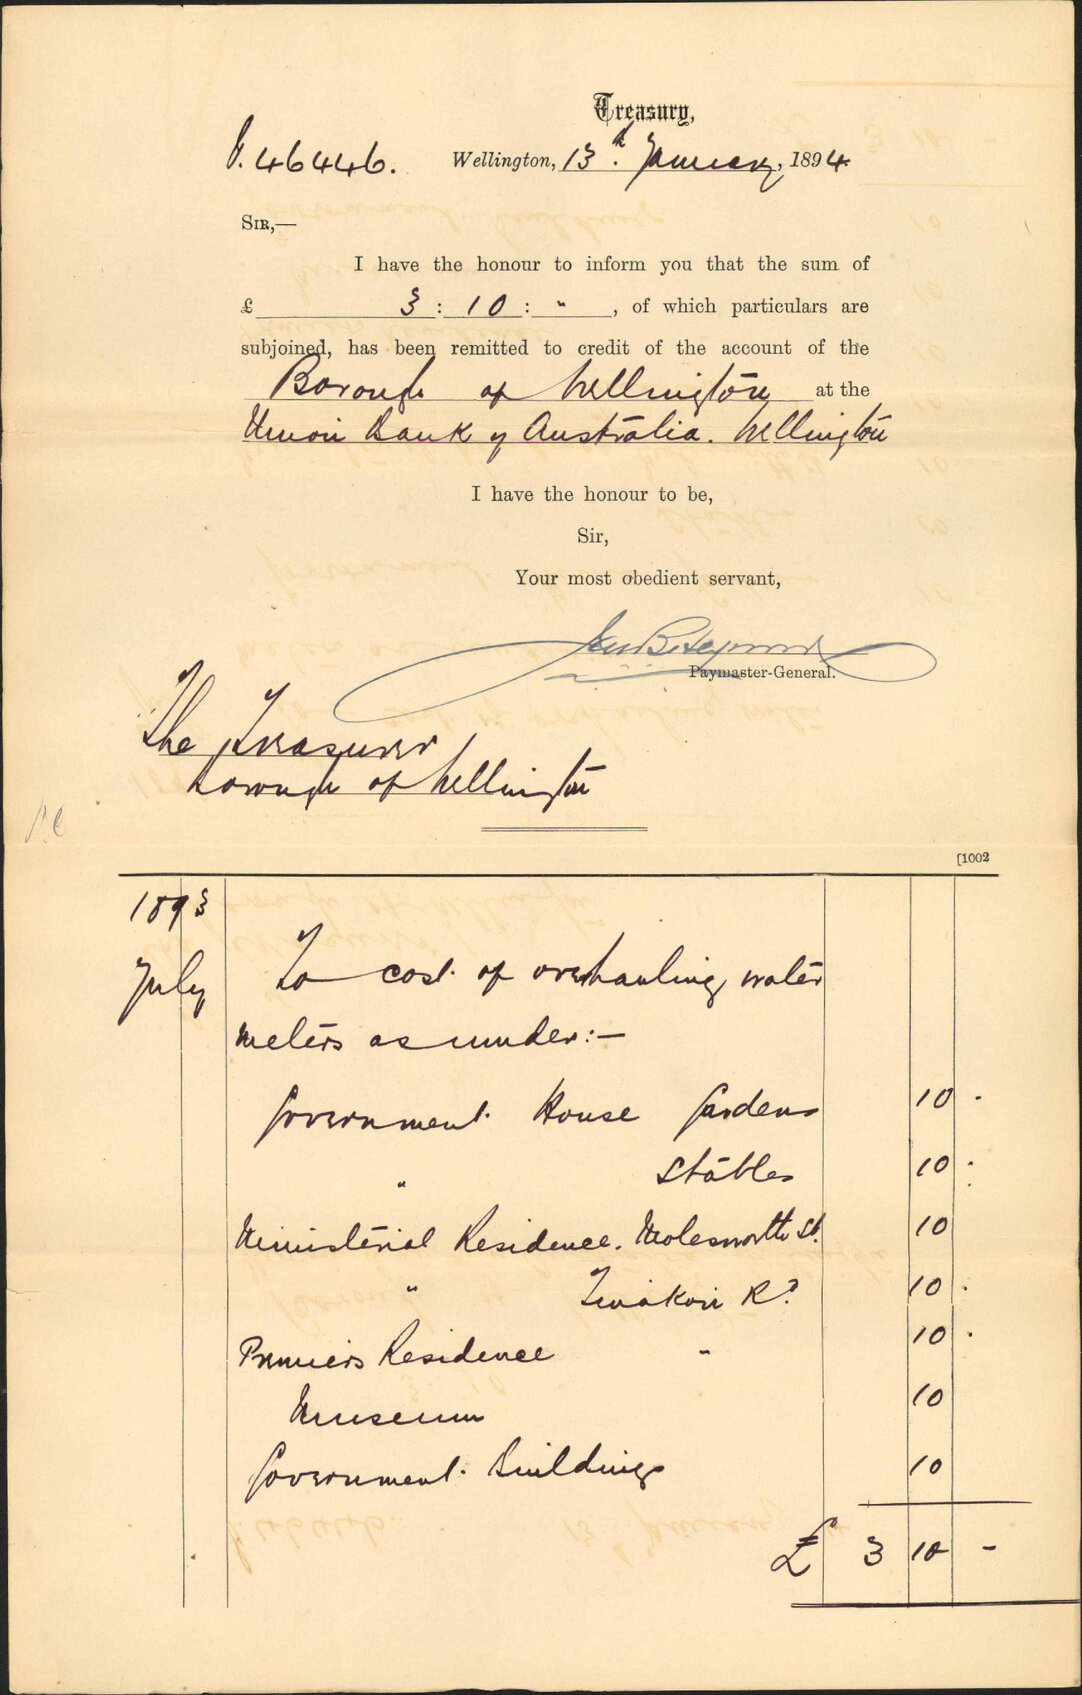 Treasury,
46446. Wellington, 13th January, 1894
SIR,—
I have the honour to inform you that the sum of
£ 3 : 10 : " , of which particulars are
subjoined, has been remitted to credit of the account of the
Borough of Wellington at the
Union Bank of Australia. Wellington
I have the honour to be,
Sir,
Your most obedient servant,
Jas B. Heywood
Paymaster-General.
The Treasurer
Borough of Wellington
[1002
1893
July To cost of overhauling water
meters as under:—
Government House Gardens 10 -
" Stables 10 :
Ministerial Residence. Molesworth St. 10
" Tinakori Rd 10 .
Premiers Residence " 10 .
Museum 10
Government Buildings 10
£ 3 10 -